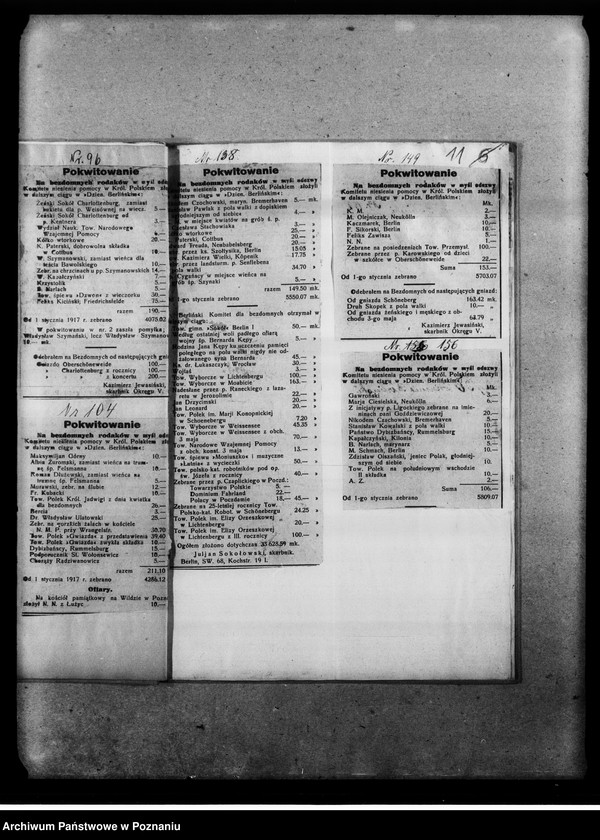 Nr. 96
Pokwitowanie
Na bezdomnych rodaków w myśl odezwy
Komitetu niesienia pomocy w Król. Polskiem złożyli
w dalszym ciągu w »Dzien. Berlińskim«:
Żeński Sokół Charlottenburg, zamiast
bukietu dla p. Weisównej na wiecz. 5.—
Żeński Sokół Charlottenburg od
p. Kestnera 3.—
Wydział Nauk. Tow. Narodowego
Wzajemnej Pomocy
Kółko wtorkowe 20.—
K. Paterski, dobrowolna składka
w Cottbus 10.—
W. Szymonowski, zamiast wieńca dla
teścia Nawolskiego 10.—
Zebr. na chrzcinach u pp. Szymanowskich 14.—
W. Kazalczyński 5.—
Krzystolik 5.—
B. Nerlach 5.—
Tow. śpiewu »Dzwon« z wieczorku 30.—
Feliks Kiciński, Friedrichsfelde 75.—
razem 190.—
Od 1 stycznia 1917 r. zebrano 4075.02
W pokwitowaniu w nr. 2 zaszła pomyłka,
Władysław Szymański, lecz Władysław Szymonowski
10.— mk.
Odebrałem na Bezdomnych od następujących gniazd:
Gniazdo Oberschöneweide 100.—
" Charlottenburg z rocznicy 100.—
" " z koncertu 200.—
Kazimierz Jewasiński,
skarbnik Okręgu V.
Nr 104
Pokwitowanie
Na bezdomnych rodaków w myśl odezwy
Komitetu niesienia pomocy w Król. Polskiem złożyli
w dalszym ciągu w »Dzien. Berlińskim«:
Maksymiljan Odrey 10.—
Albin Żuromski, zamiast wieńca na trum-
nę śp. Felsmanna 10.—
Roman Olszewski, zamiast wieńca na
trumnę śp. Felsmanna 5.—
Murawski, zebr. na ślubie 12.—
Fr. Kubacki 10.—
Tow. Polek Król. Jadwigi z dnia kwiatka
dla bezdomnych 26.—
Bercia 5.—
Dr. Władysław Ulatowski 25.—
Zebr. na gorzkich żalach w kościele
N. M. P. przy Wrangelstr. 30.70
Tow. Polek »Gwiazda« z przedstawienia 39.40
Tow. Polek »Gwiazda« zwykła składka 10.—
Dybizbańscy, Rummelsburg 15.—
Podporucznik St. Wołoncewicz 10.—
Chorąży Radziwanowicz 5.—
razem 211.10
Od 1 stycznia 1917 r. zebrano 4286.12
Ofiary.
Na kościół pamiątkowy na Wildzie w Pozn
złożył N. N. z Łużyc 10.—
Nr 138
Pokwitowanie
Na bezdomnych rodaków w myśl odezwy
Komitetu niesienia pomocy w Król. Polskiem złożyli
w dalszym ciągu w »Dzien. Berlińskim«:
Czochowski, maryn. Bremerhaven 5.— mk.
Pawlak z pola walki z dopiskiem
»młodzieżom od siebie« 4.— »
w miejsce kwiatów na grób ś. p.
Stachowiaka 3.— »
wtorkowe 25.— »
Paterski, Cottbus 20.— »
Treuda, Neubabelsberg 20.— »
przez ks. Szołtysika, Berlin 15.05 »
Kazimierz Wielki, Köpenik 17.75 »
przez landsturm. p. Senftlebena
pola walki 34.70 »
Cygańscy w miejsce wieńca na
grób śp. Szynski 5.— »
razem 149.50 mk.
1-go stycznia zebrano 5550.07 »
Berliński Komitet dla bezdomnych otrzymał w
ciągu:
Tow. gimn. »Sokół« Berlin I 50.— mk.
Według ostatniej woli padłego ofiarą
wojny śp. Bernarda Kępy 5.— »
Rodzina Jana Kępy ku uczczeniu pamięci
poległego na polu walki nigdy nie od-
żałowanego syna Bernarda 45.— »
Ks. dr. Łukaszczyk, Wrocław 30.— »
Wojtal 3.— »
Tow. Wyborcze w Lichtenbergu 100.— »
Tow. Wyborcze w Moabicie 163.— »
Nadesłane przez p. Raneckiego z laza-
retu w Jerozolimie 22.— »
Jan Drzycimski 20.— »
Jan Leonard 20.— »
Tow. Polek im. Marji Konopnickiej
w Schönebergu 7.20 »
Tow. Wyborcze w Weissensee 45.35 »
Tow. Wyborcze w Weissensee z obch.
3 maja 70.— »
Tow. Narodowe Wzajemnej Pomocy
z obch. konst. 3 maja 13.— »
Tow. śpiewu »Moniuszko« i muzyczne
»Lutnia« z wycieczki 50.— »
Tow. polsko kat. robotników pod op.
św. Józefa z rocznicy 40.— »
Zebrane przez p. Czaplickiego w Poczd.:
Towarzystwo Polskie 5.—
Dominium Fahrland 22.—
Polacy w Pocdamie 18.— 45.— »
Zebrane na 25-letniej rocznicy Tow.
Polsko-kat. Robot. w Schönebergu 24.25 »
Tow. Polek im. Elizy Orzeszkowej
w Lichtenbergu 20.— »
Tow. Polek im. Elizy Orzeszkowej
w Lichtenbergu z III. rocznicy 100.— »
Ogółem złożono dotychczas 35 628.59 mk.
Juljan Sokołowski, skarbnik.
Berlin, SW. 68, Kochstr. 19 I.
Nr. 149
11
Pokwitowanie
Na bezdomnych rodaków w myśl odezwy
Komitetu niesienia pomocy w Król. Polskiem złożyli
w dalszym ciągu w »Dzien. Berlińskim«:
Mk.
K. M. 2.—
M. Olejniczak, Neukölln 3.—
Kaczmarek, Berlin 10.—
F. Sikorski, Berlin 10.—
Feliks Zawisza 5.—
N. N. 1.—
Zebrane na posiedzeniach Tow. Przemysł. 100.—
Zebrane przez p. Karowskiego od dzieci
w szkółce w Oberschöneweide 22.—
Suma 153.—
Od 1-go stycznia zebrano 5703.07
Odebrałem na Bezdomnych od następujących gniazd:
Od gniazda Schöneberg 163.42 mk.
Druh Skopek z pola walki 10.— »
Od gniazda żeńskiego i męskiego z ob-
chodu 3-go maja 64.79 »
Kazimierz Jewasiński,
skarbnik Okręgu V.
Nr. 156
Pokwitowanie
Na bezdomnych rodaków w myśl odezwy
Komitetu niesienia pomocy w Król. Polskiem złożyli
w dalszym ciągu w »Dzien. Berlińskim«:
Mk.
Gawroński 3.—
Marja Ciesielska, Neukölln 6.—
Z inicjatywy p. Ligockiego zebrane na imie-
ninach pani Goździewiczowej 20.—
Nikodem Czachowski, Bremerhaven 5.—
Stanisław Kowalski z pola walki 10.—
Państwo Dybizbańscy, Rummelsburg 15.—
Kapałczyński, Kilonia 10.—
B. Nerlach, marynarz 5.—
M. Schmach, Berlin 10.—
Zdzisław Olszański, jeniec Polak, głodniej-
szym od siebie 10.
Tow. Polek na południowym wschodzie
B. składka 10.—
A. Z. 2.—
Suma 106.—
Od 1-go stycznia zebrano 5809.07
Archiwum Państwowe w Poznaniu